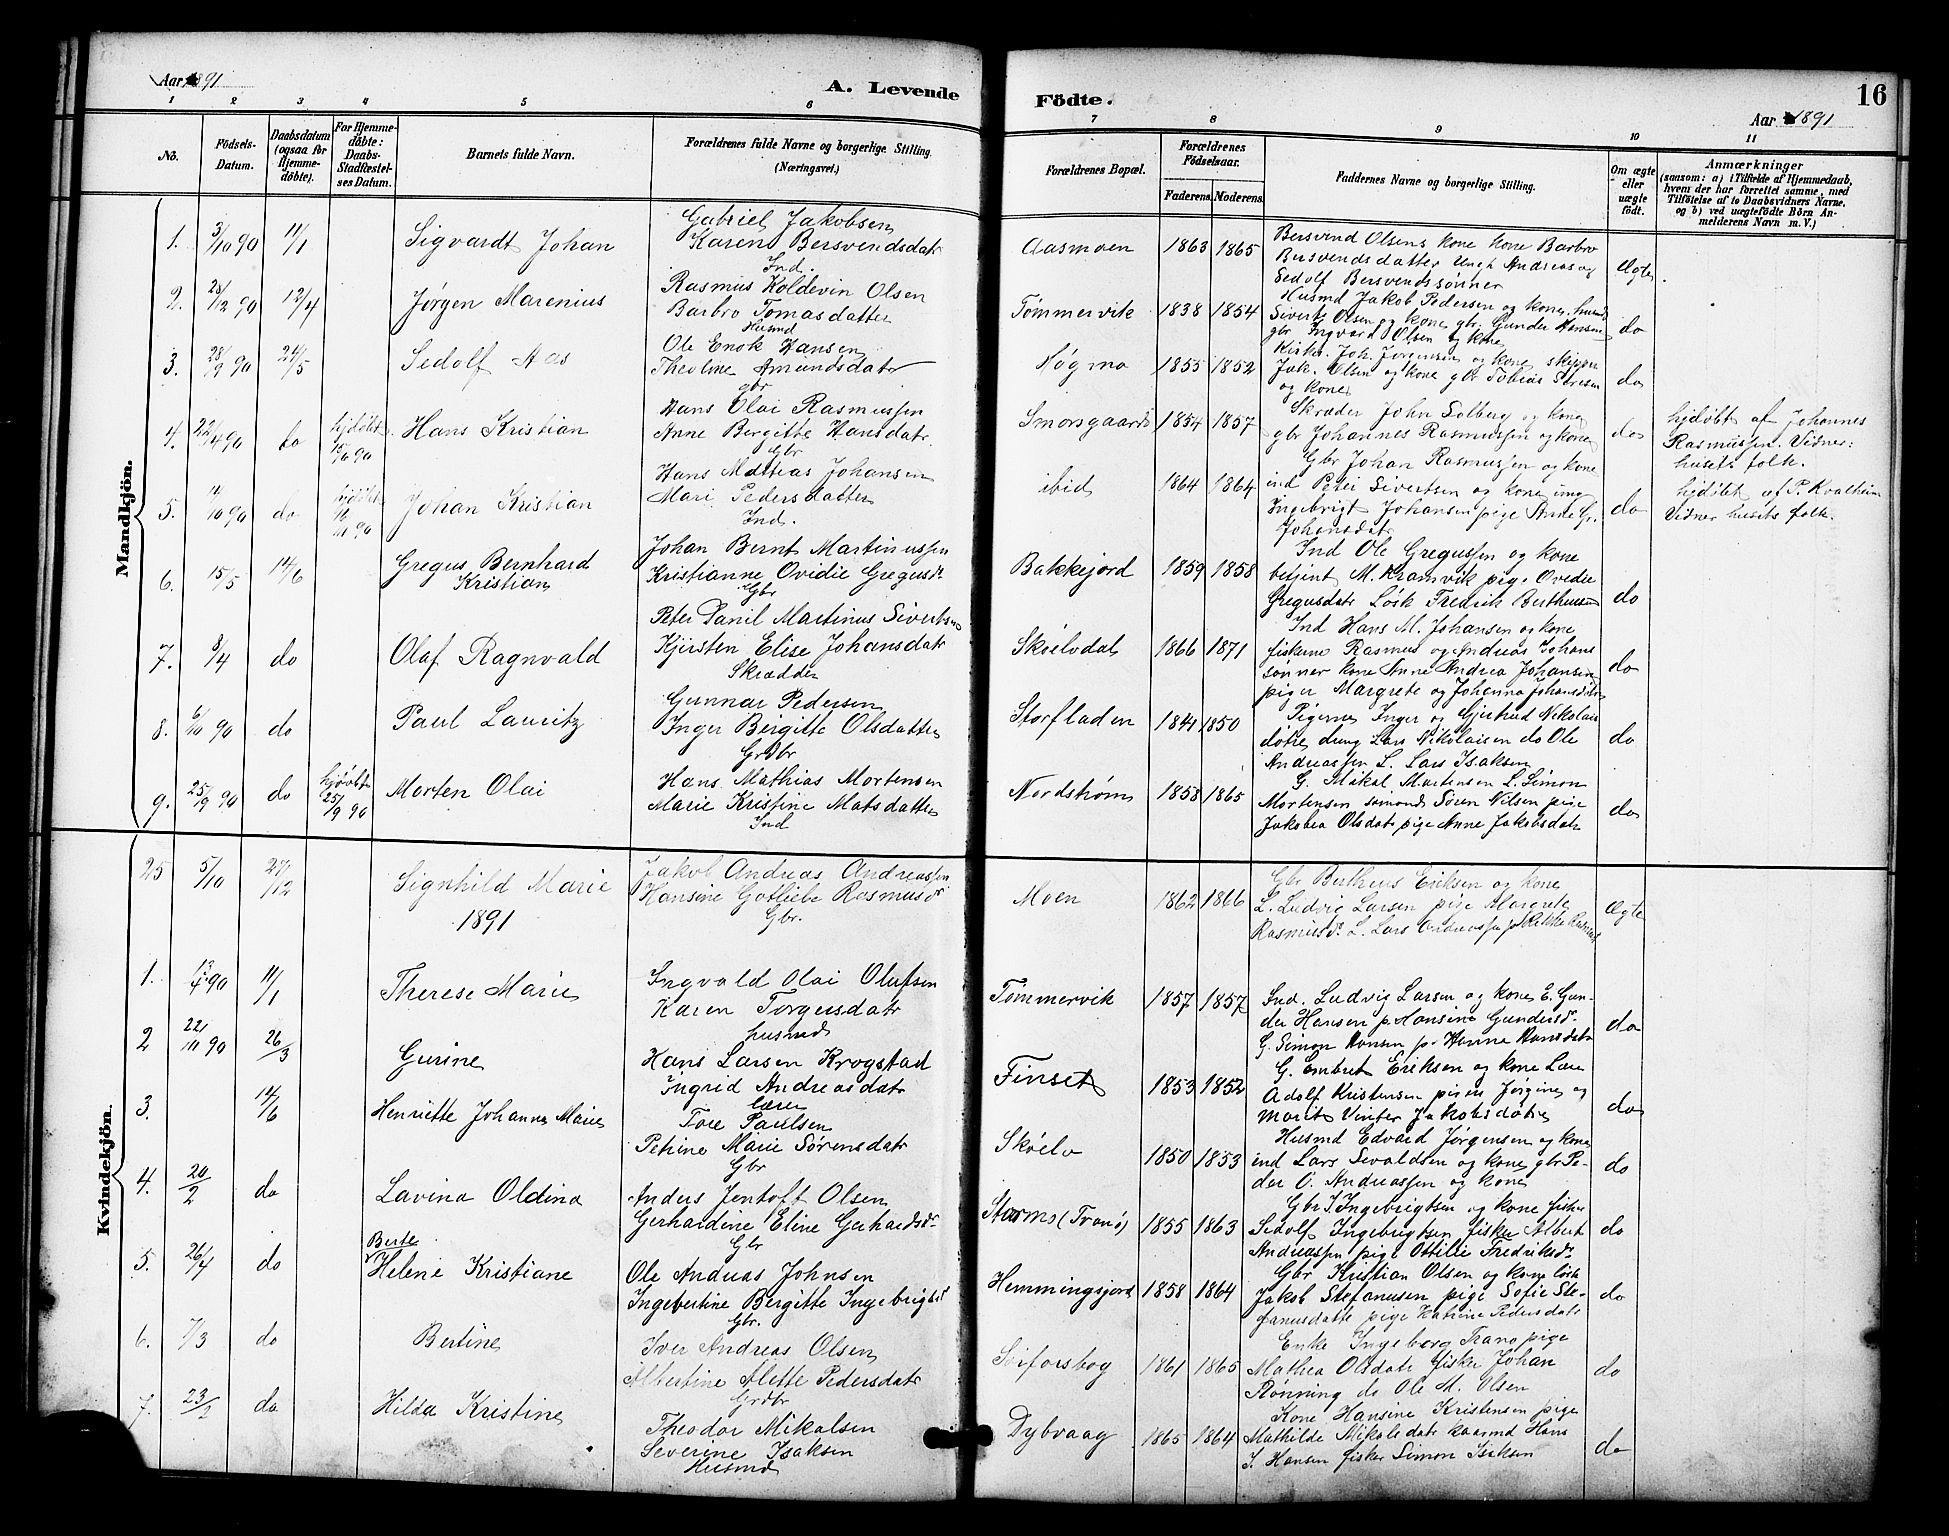 Aar 1891
A. Levende
Födte.
Aar 1891
16
1 2 3 4 5 6 7 8 9 10 11
No.
Födsels-Datum.
Daabsdatum (ogsaa for Hjemmedöbte).
For Hjemmedöbte: Daabs-Stadfæstelses Datum.
Barnets fulde Navn.
Forældrenes fulde Navne og borgerlige Stilling. (Næringsvei.)
Forældrenes Bopæl.
Forældrenes Födselsaar.
Faderens Moderens
Faddernes Navne og borgerlige Stilling.
Om ægte eller uægte födt.
Anmærkninger
(saasom: a) i Tilfælde af Hjemmedaab, hvem der har forrettet samme, med Tilföielse af to Daabsvidners Navne, og b) ved uægtefödte Börn Anmelderens Navn m. V.)
Mandkjön.
1. 3/10 90 11/1 Sigvardt Johan
Gabriel Jakobsen
Karen Bersvendsdatr
Ind.
Aasmoen 1863 1865
Bersvend Olsens kone kone Barbro
Bersvendsdatter Ungk Andreas og
Sedolf Bersvendssønner
Ægte
2. 28/12 90 12/4 Jørgen Marenius
Rasmus Koldevin Olsen
Barbro Tomasdatter
Husmd
Tømmervik 1838 1854
Husmd Jakob Pedersen og kone, husmd
Siverts Olsen og kone gbr. Gunder Hansen
gbr Ingvard Olsen og kone
do
3. 28/9 90 24/5 Sedolf Aas
Ole Enok Hansen
Theoline Amundsdatr
gbr
Nøgmo 1855 1852
Kirks. Joh. Jørgensen og kone skipper
Jak. Olsen og kone gbr Tobias Søresen
og kone
do
4. 22/4 90 do hjdøbt 15/6 90 Hans Kristian
Hans Olai Rasmussen
Anne Bergitte Hansdatr
Gbr
Smorsgaards 1854 1857
Skræder John Solberg og kone
gbr Johannes Rasmussen og kone
Gbr Johan Rasmussen og kone
do
hjdøbt af Johannes
Rasmussen. Vidner:
husets folk.
5. 14/10 90 do hjdøbt 16/11 90 Johan Kristian
Hans Mathias Johansen
Mari Pedersdatter
Ind.
ibid 1864 1864
ind Peter Sivertsen og kone ung
Ingebrigt Johansen pige Anne G.
Johansdatr
do
hjdøbt af P. Kvalheim
Vidner husets folk.
6. 15/5 14/6 Gregus Bernhard
Kristian
Johan Bernt Martinussen
Kristianne Ovidie Gregusdr
Gbr
Bakkejord 1859 1858
Ind Ole Gregussen og kone
betjent M. Kramvik pige Ovedie
Gregusdatr Løsk Fredrik Bertheussen
do
7. 8/4 do Olaf Ragnvald
Peter Danil Martinus Sivertsen
Kjersten Elise Johansdatr
Skrædder
Skøelvdal 1866 1871
Ind Hans M. Johansen og kone
fiskerne Rasmus og Andreas Johans
sønner kone Anne Andrea Johansen
piger Margrete og Johanna Johansdøtre
do
8. 6/10 90 do Paul Lauritz
Gunnar Pedersen
Inger Birgitte Olsdatter
Grdbr
Storfladen 1844 1850
Pigerne Inger og Gjertrud Nikolais
døtre, dreng Lars Nikolaisen do Ole
Andreassen L. Lars Isaksen
do
9. 25/9 90 do hjdøbt 25/9 90 Morten Olai
Hans Mathias Mortensen
Marie Kristine Matsdatter
Ind
Nordstrøm 1858 1865
G. Mikal Martensen L. Simon
Mortensen sømand Søren Nilsen pige
Jakobea Olsdatr pige Anne Jakobsdatr
do
Kvindekjön.
25 5/10 27/12 Signhild Marie
Jakob Andreas Andreassen
Hansine Gotliebe Rasmusdr
Gbr.
Moen 1862 1866
Gbr Bertheus Eriksen og kone
L. Ludvig Larsen pige Margrete
Rasmusdr L. Lars Andreassen
Ægte
1891
1. 90 11/1 Therese Marie
Ingvald Olai Olufsen
Karen Torgersdatr
husmd
Tømmervik 1857 1857
Ind. Ludvig Larsen og kone E. Gun-
der Hansen p. Hansine Gundersdr.
G. Simon Hansen p. Hanna Hansdatr
do
2 22/11 90 26/3 Gurine
Hans Larsen Krogstad
Ingrid Andreasdatr
lærer
Finset 1853 1852
G. Embret Eriksen og kone Lære
Adolf Kristensen pigen Jørgine og
Marit Vinter Jakobsdøtre
do
3. 14/6 Henriette Johanne Marie
Tore Paulsen
Petrine Marie Sørensdatr
Gbr
Skøelv 1850 1853
Husmd Edvard Jørgensen og kone
ind Lars Sivaldsen og kone gbr Pe-
der O. Andreassen og kone
do
4. 20/2 do Lavina Oldina
Anders Jentoft Olsen
Gerhardine Eline Gerhardsdr
Gbr
Stormo (Tranø) 1855 1863
Gbr I Ingebrigtsen og kone fisker
Sedolf Ingebrigtsen fisker Albert
Andreassen pige Ottilie Fredriksdr
do
5. 26/4 do Berte
Helene Kristiane
Ole Andreas Johnsen
Ingebertine Bergitte Ingebrigtsdr
Gbr.
Hemmingsjord 1858 1864
Gbr Kristian Olsen og kone løsk
Jakob Stefanusen pige Sofie Ste-
fanusdatte pige Katrine Pedersdatr
do
6. 7/3 do Bertine
Iver Andreas Olsen
Albertine Alette Pedersdatr
Grdbr
Sniforsbog 1861 1865
Enke Ingeborg Trano pige
Mathea Olsdatr fisker Johan
Rønning do Ole M. Olsen
do
7. 23/2 do Hilda Kristine
Theodor Mikalsen
Severine Isaksen
Husmd
Dybvaag 1865 1864
Kone Hansine Kristensen pige
Mathilde Mikalsdatr kaarmd Hans
I. Hansen fisker Simon Isaksen
do